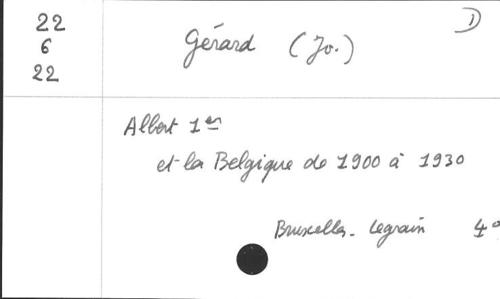 22
6
22
Gérard (Jo.)
D
Albert 1er
et la Belgique de 1900 à 1930
Bruxelles - Legrain 4°